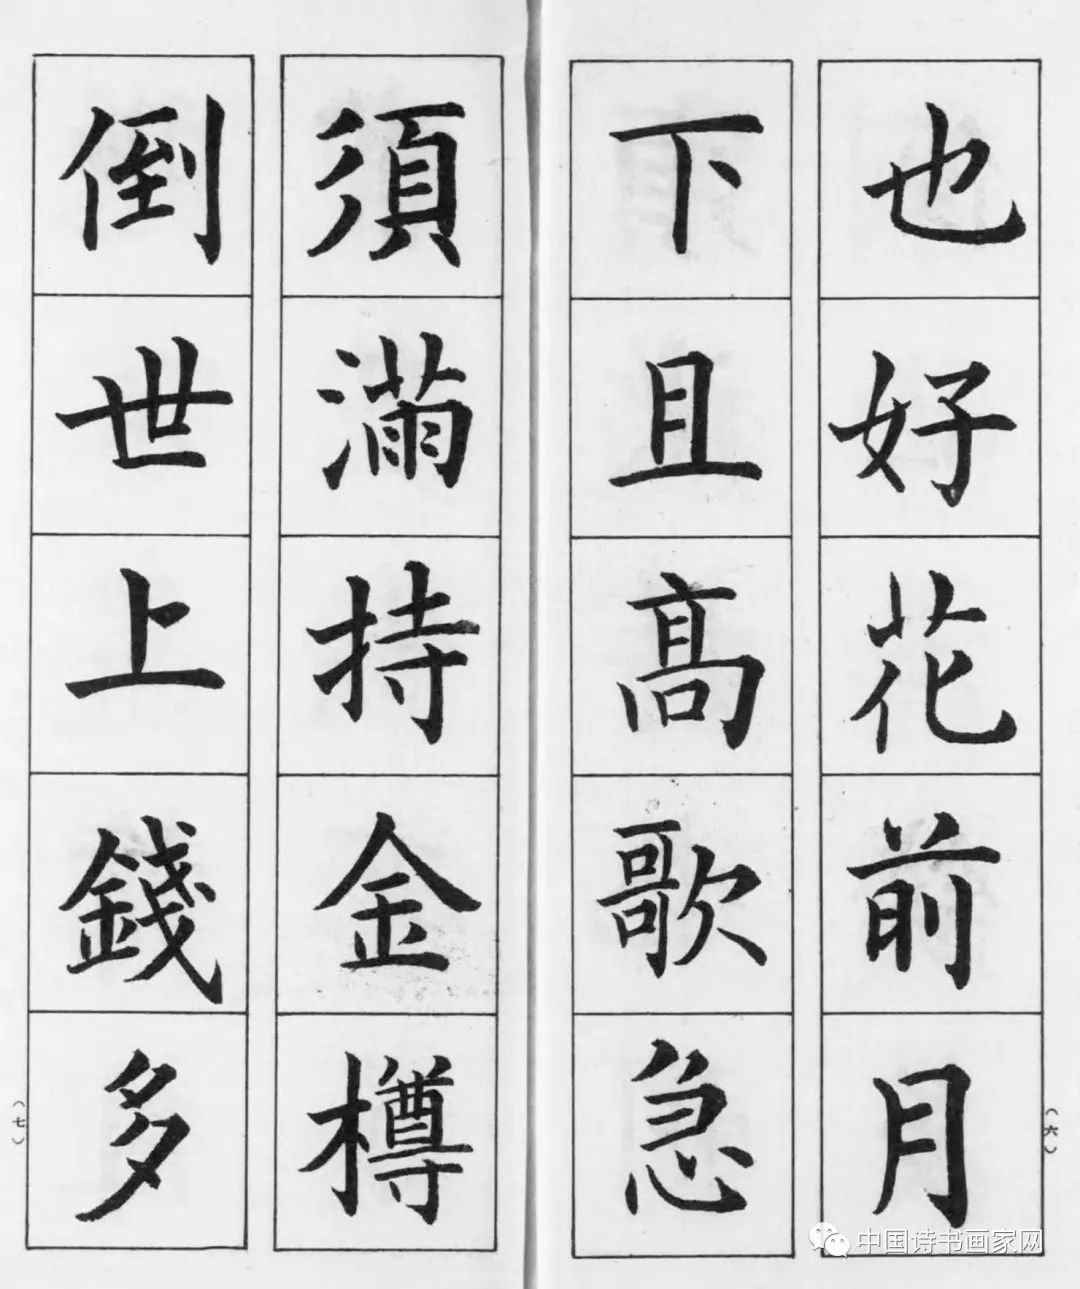 也好花前月
下且高歌急
須滿持金樽
倒世上錢多
（六）
（七）
中国诗书画家网